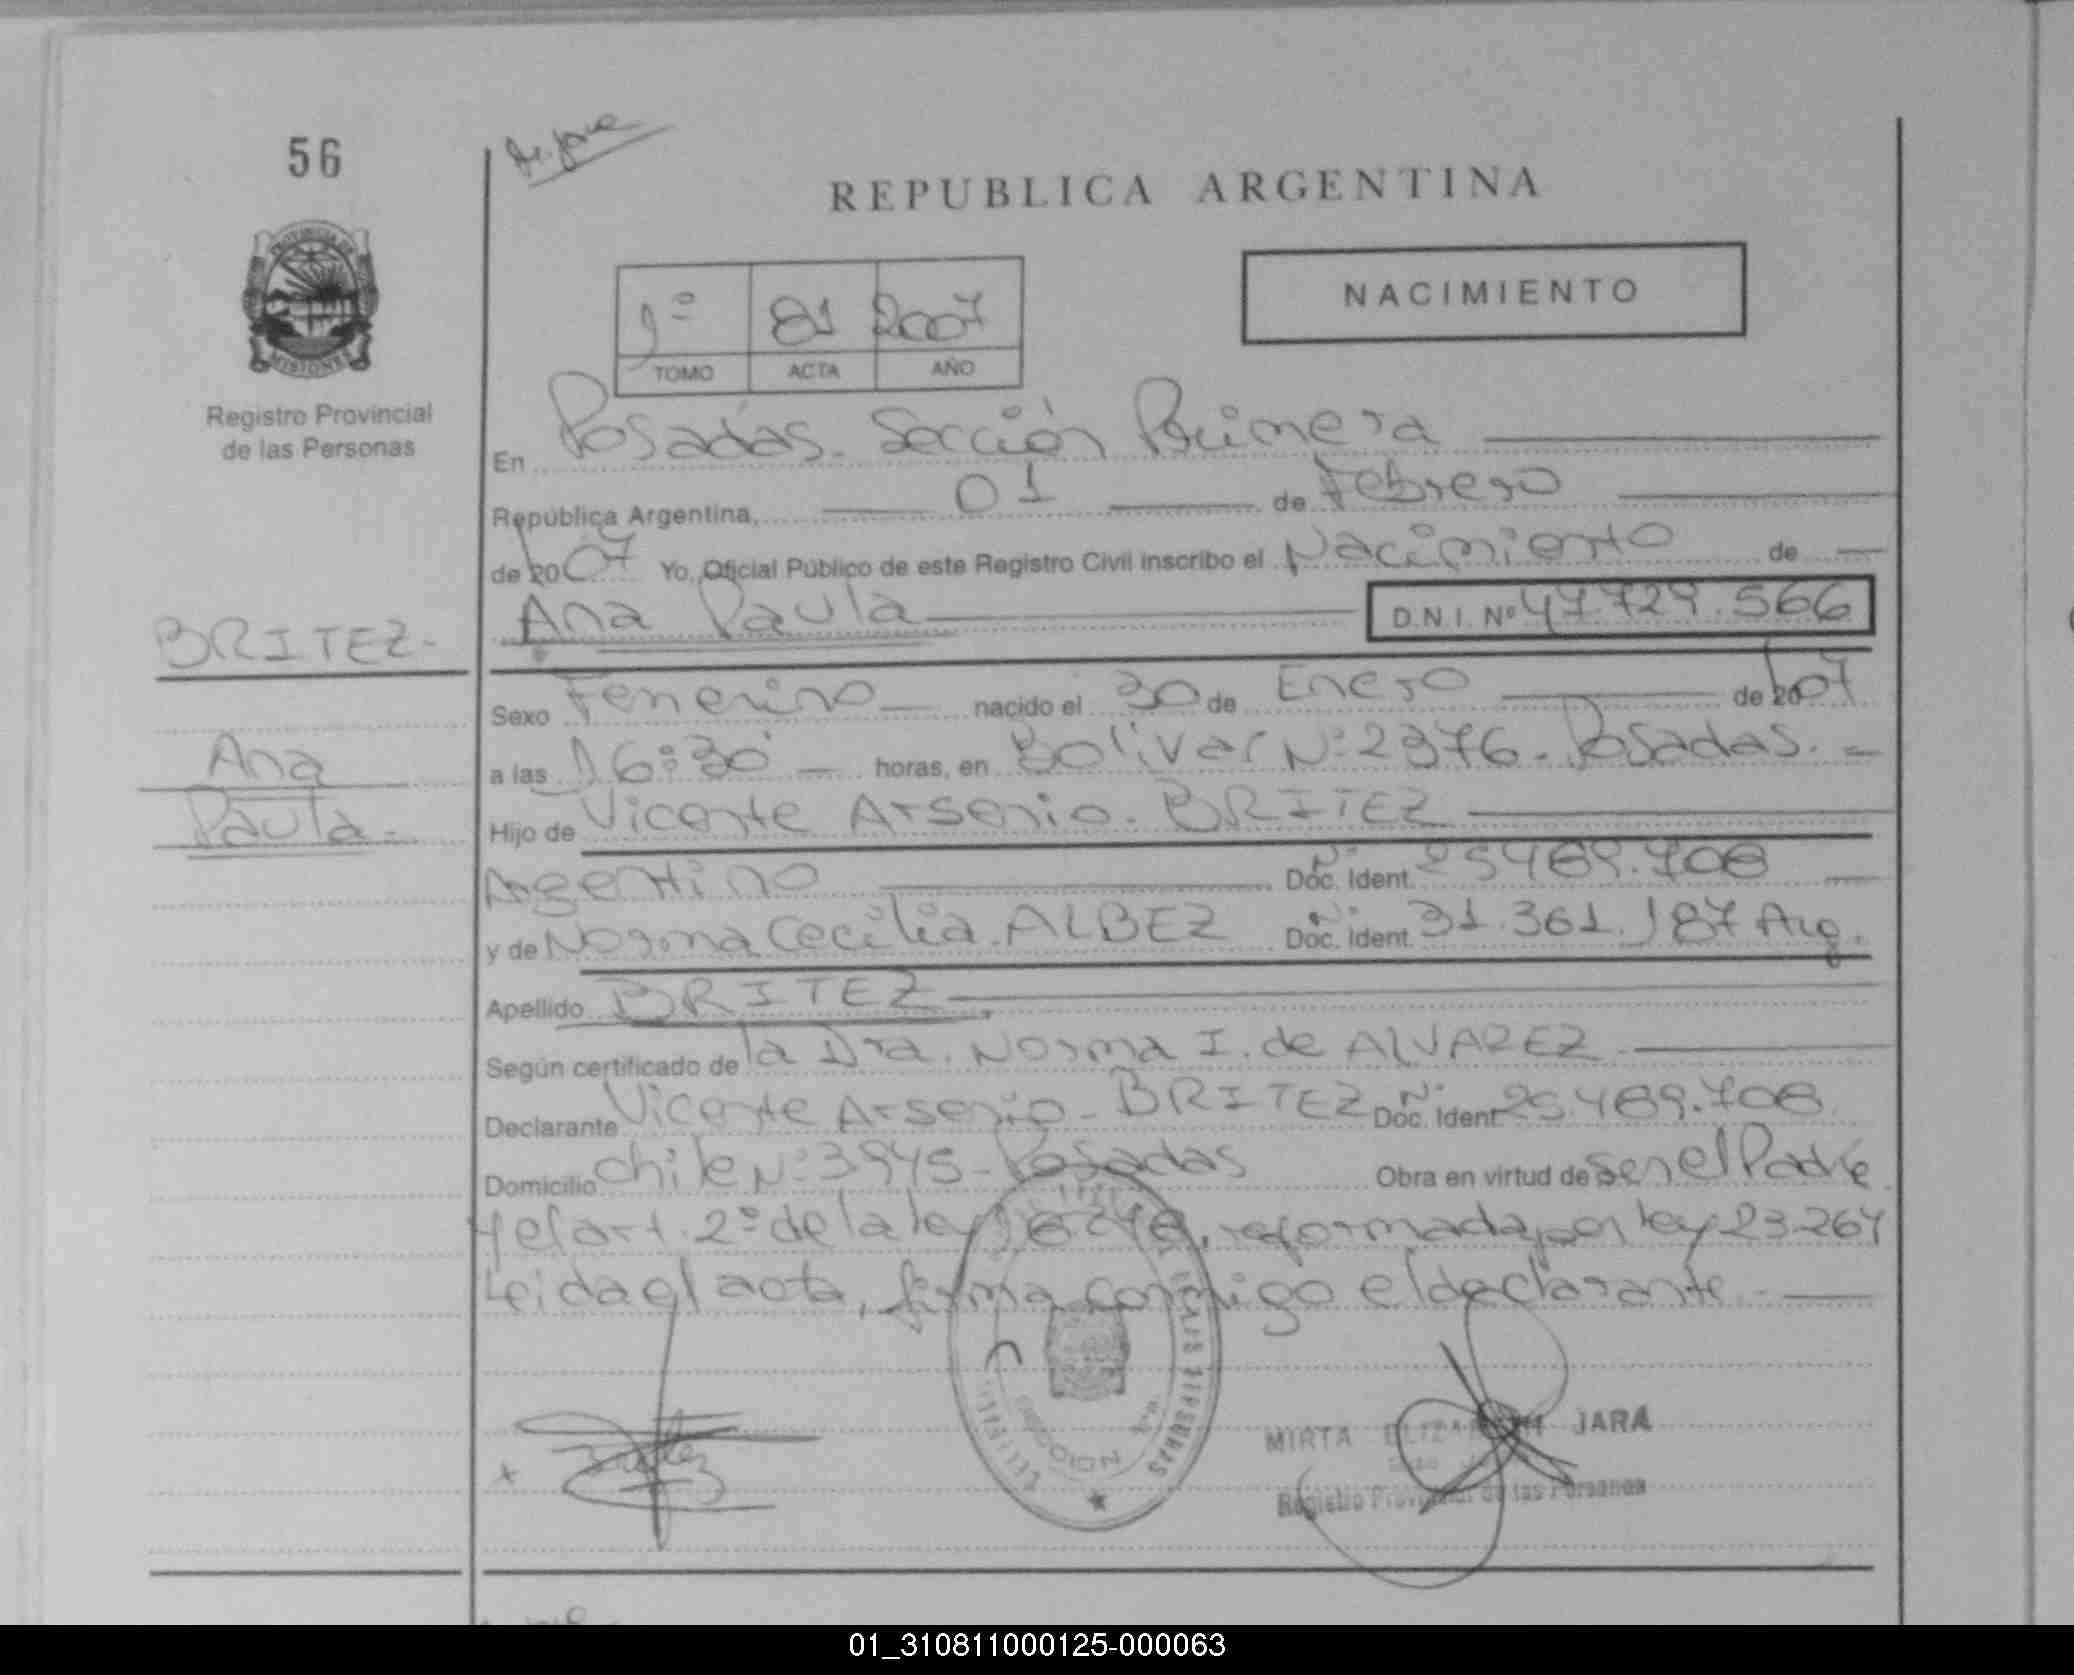 56
REPUBLICA ARGENTINA
PROVINCIA DE
MISIONES
NACIMIENTO
1º 81 2007
TOMO ACTA AÑO
Registro Provincial
de las Personas
En Posadas. Sección Primera
República Argentina, 01 de Febrero
de 2007 Yo, Oficial Público de este Registro Civil inscribo el Nacimiento de
Ana Paula D.N.I. Nº 47.729.566
BRITEZ-
Sexo Femenino nacido el 30 de Enero de 2007
Ana
a las 16:30 horas, en Bolívar Nº 2376 - Posadas. -
Paula-
Hijo de Vicente Arsenio. BRITEZ
Argentino Doc. Ident. Nº 25489.708
y de Norma Cecilia. ALBEZ Doc. Ident. Nº 31.361.187 Arg.
Apellido BRITEZ
Según certificado de la Dra. Norma I. de ALVAREZ
Declarante Vicente Arsenio - BRITEZ Doc. Ident. Nº 25.489.708
Domicilio chile Nº 3945 - Posadas Obra en virtud de ser el Padre
y el art. 2º de la ley 18248, reformada por ley 23.264
Leida el acta, firma conmigo el declarante -
MIRTA ELIZABETH JARA
Registro Provincial de las Personas
01_310811000125-000063